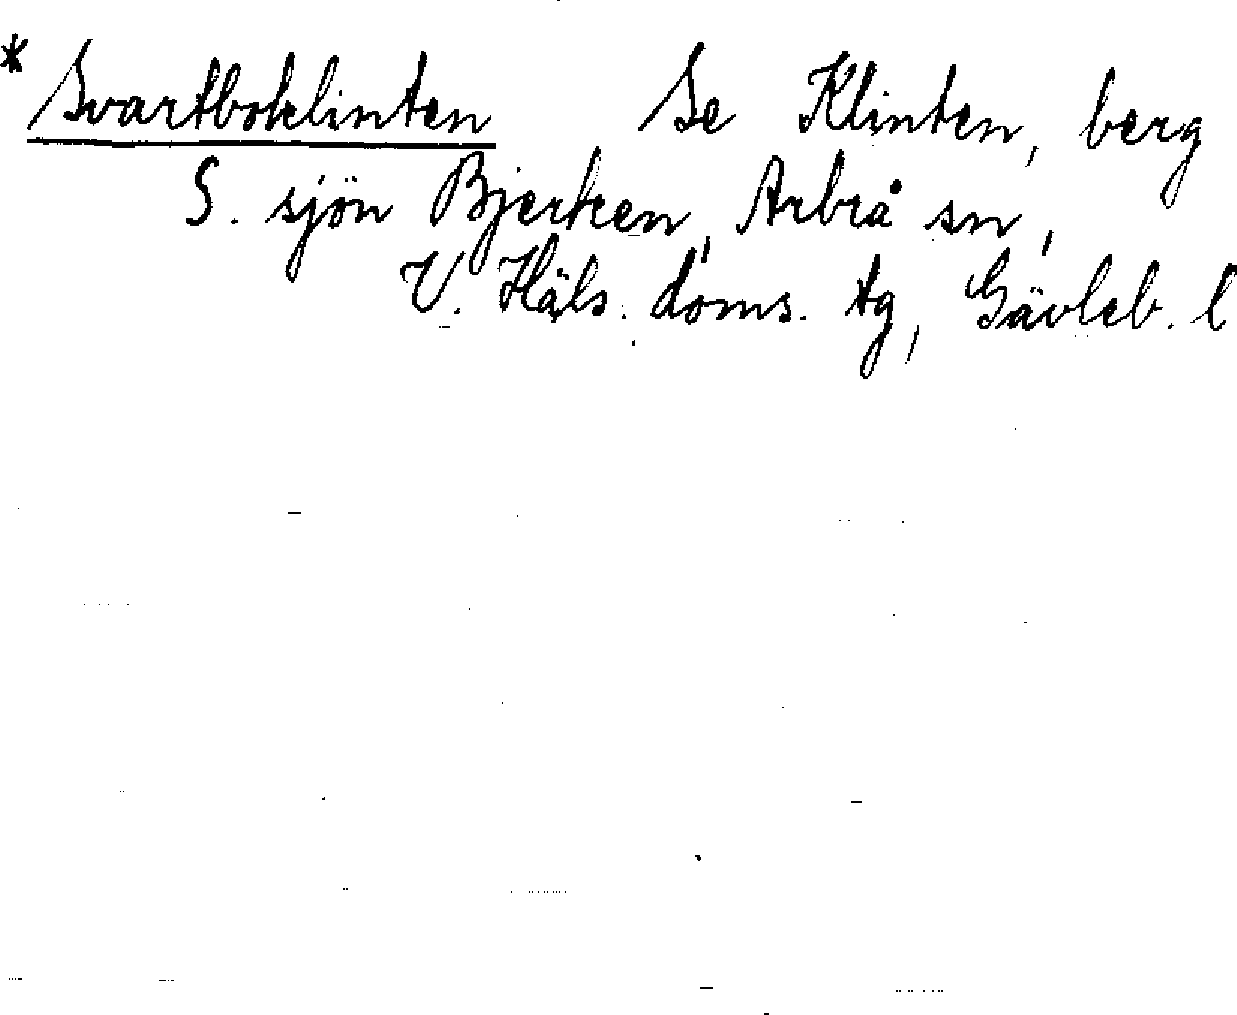 * Svartboklinten Se Klinten, berg
S. sjön Bjerken, Arbrå sn,
V. Häls. doms. tg, Gävleb. l